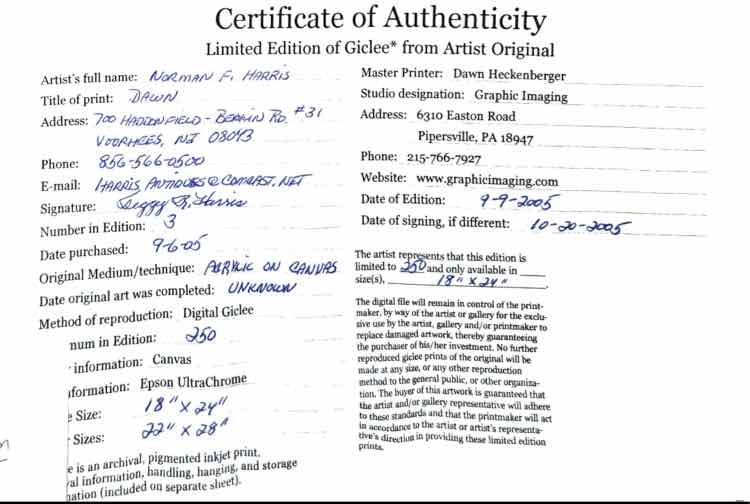 Certificate of Authenticity
Limited Edition of Giclee* from Artist Original
Artist's full name: NORMAN F. HARRIS
Title of print: DAWN
Address: 700 HADDONFIELD - BERLIN RD. #31
VOORHEES, NJ 08043
Phone: 856-566-0500
E-mail: HARRIS.ANTIQUES@COMCAST.NET
Signature: Peggy R. Harris
Number in Edition: 3
Date purchased: 9-6-05
Original Medium/technique: ACRYLIC ON CANVAS
Date original art was completed: UNKNOWN
Method of reproduction: Digital Giclee
num in Edition: 250
information: Canvas
nformation: Epson UltraChrome
e Size: 18" X 24"
Sizes: 22" X 28"
e is an archival, pigmented inkjet print.
al information, handling, hanging, and storage
mation (included on separate sheet).
Master Printer: Dawn Heckenberger
Studio designation: Graphic Imaging
Address: 6310 Easton Road
Pipersville, PA 18947
Phone: 215-766-7927
Website: www.graphicimaging.com
Date of Edition: 9-9-2005
Date of signing, if different: 10-20-2005
The artist represents that this edition is
limited to 250 and only available in
size(s), 18" X 24"
The digital file will remain in control of the print-
maker, by way of the artist or gallery for the exclu-
sive use by the artist, gallery and/or printmaker to
replace damaged artwork, thereby guaranteeing
the purchaser of his/her investment. No further
reproduced giclee prints of the original will be
made at any size, or any other reproduction
method to the general public, or other organiza-
tion. The buyer of this artwork is guaranteed that
the artist and/or gallery representative will adhere
to these standards and that the printmaker will act
in accordance to the artist or artist's representa-
tive's direction in providing these limited edition
prints.